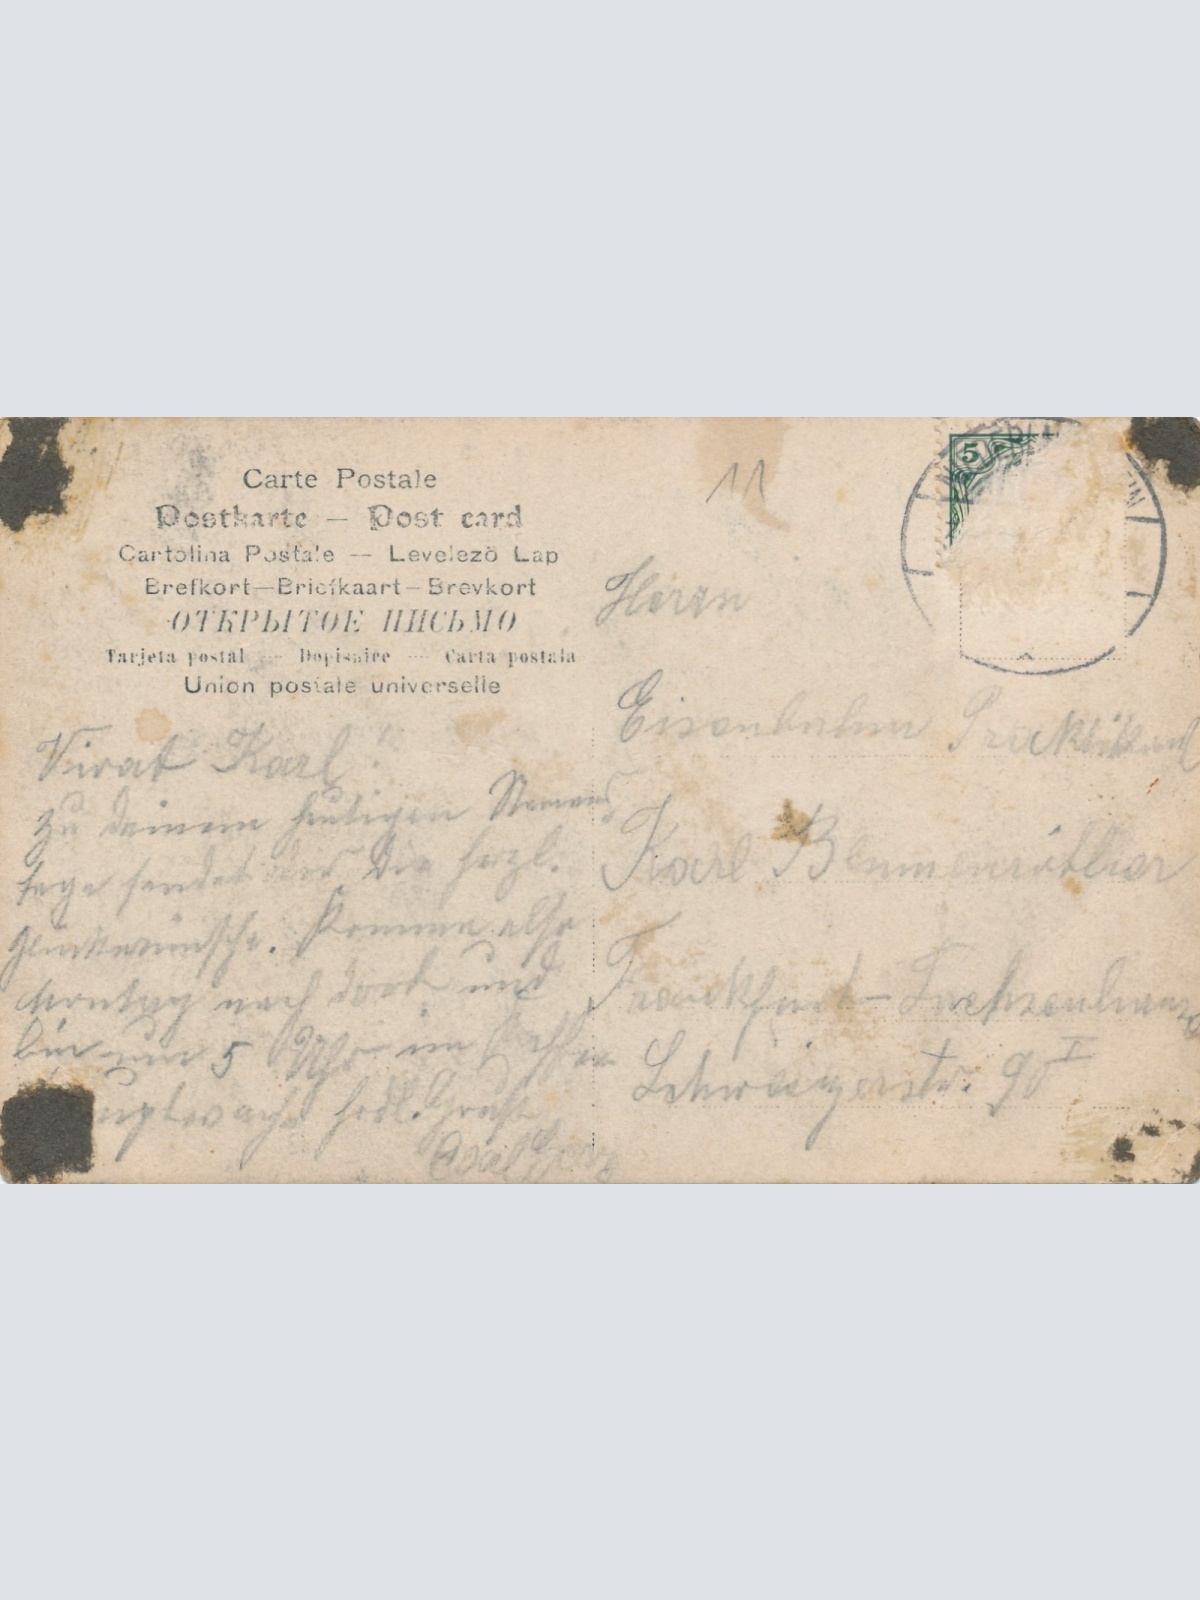 Carte Postale
Postkarte — Post card
Cartolina Postale — Levelezö Lap
Brefkort—Briefkaart—Brevkort
ОТКРЫТОЕ ПИСЬМО
Tarjeta postal — Dopisnice — Carta postala
Union postale universelle
11
5
Herrn
Eisenbahn
Karl
Frankfurt-Sachsenhaus
Schweizerstr. 90 I
Vivat Karl!
zu deinem heutigen Namens
tage sendet dir die herzl.
Glückwünsche. Komme also
Montag nach dort und
bin um 5 Uhr im
Gruß